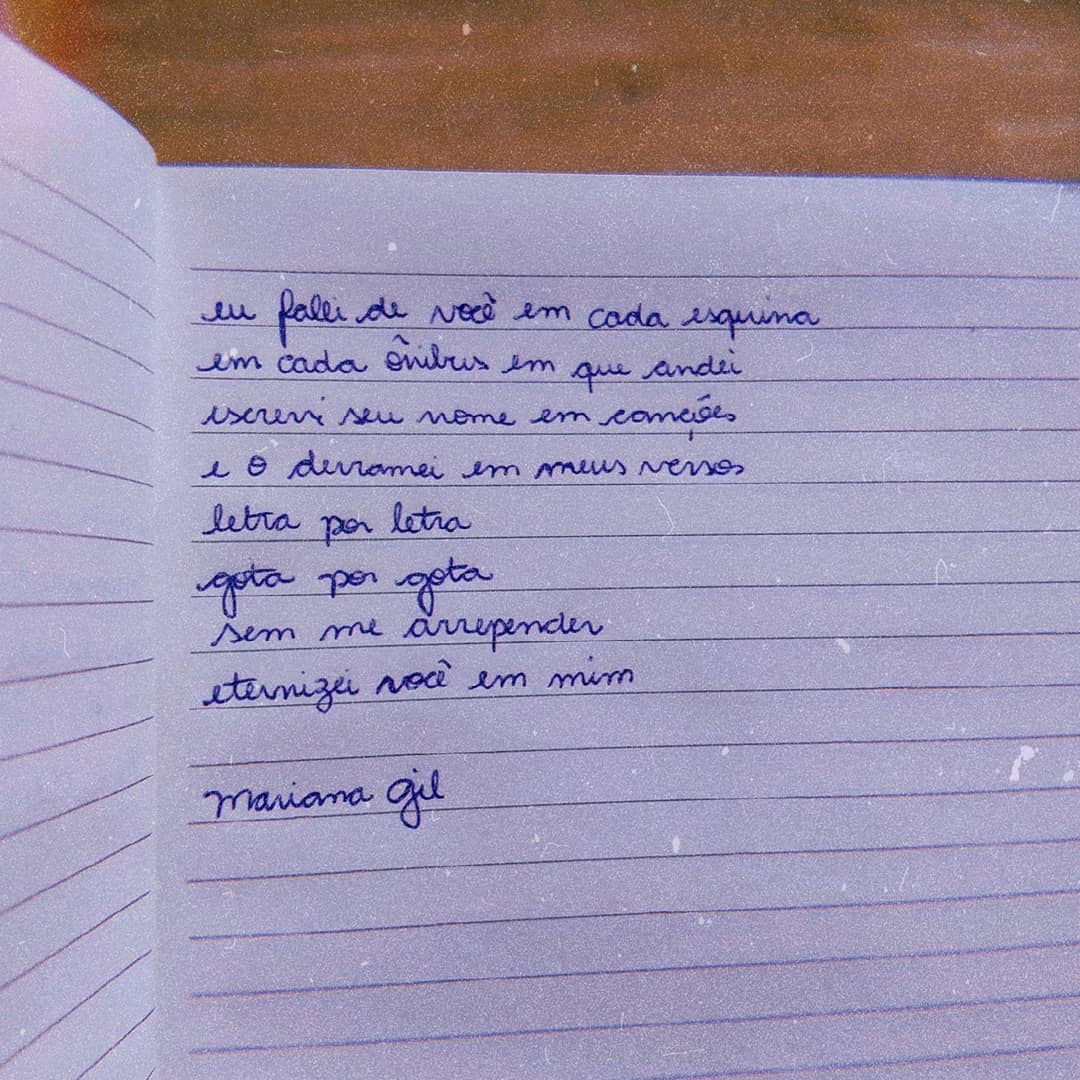 eu falei de você em cada esquina
em cada ônibus em que andei
escrevi seu nome em canções
e o derramei em meus versos
letra por letra
gota por gota
sem me arrepender
eternizei você em mim
mariana gil